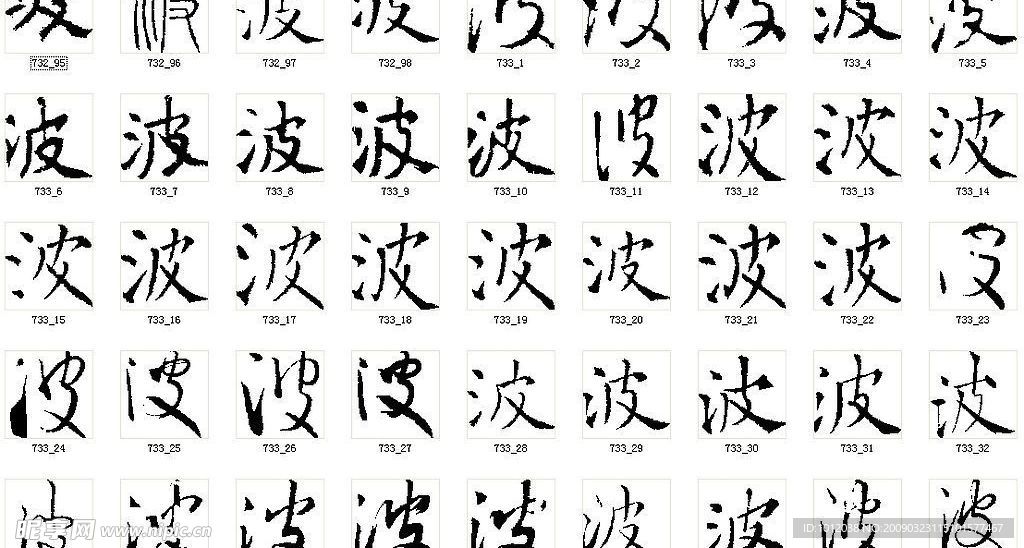 波 波 波 波 波 波 波 波 波
732_95 732_96 732_97 732_98 733_1 733_2 733_3 733_4 733_5
波 波 波 波 波 波 波 波 波
733_6 733_7 733_8 733_9 733_10 733_11 733_12 733_13 733_14
波 波 波 波 波 波 波 波 波
733_15 733_16 733_17 733_18 733_19 733_20 733_21 733_22 733_23
波 波 波 波 波 波 波 波 波
733_24 733_25 733_26 733_27 733_28 733_29 733_30 733_31 733_32
波 波 波 波 波 波 波 波 波
昵享网 www.nipic.cn